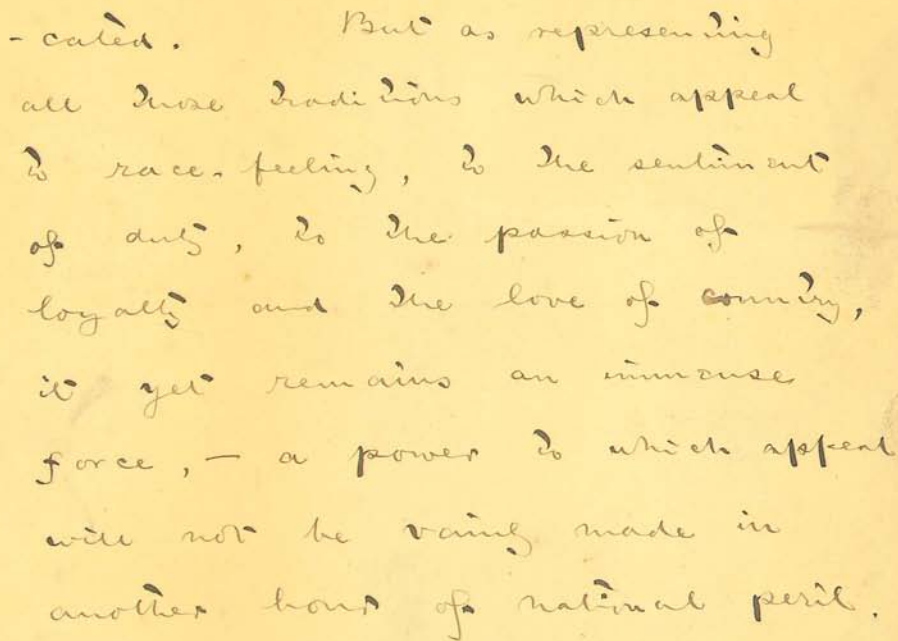 -cated. But as representing
all those traditions which appeal
to race-feeling, to the sentiment
of duty, to the passion of
loyalty and the love of country,
it yet remains an immense
force, — a power to which appeal
will not be vainly made in
another hour of national peril.